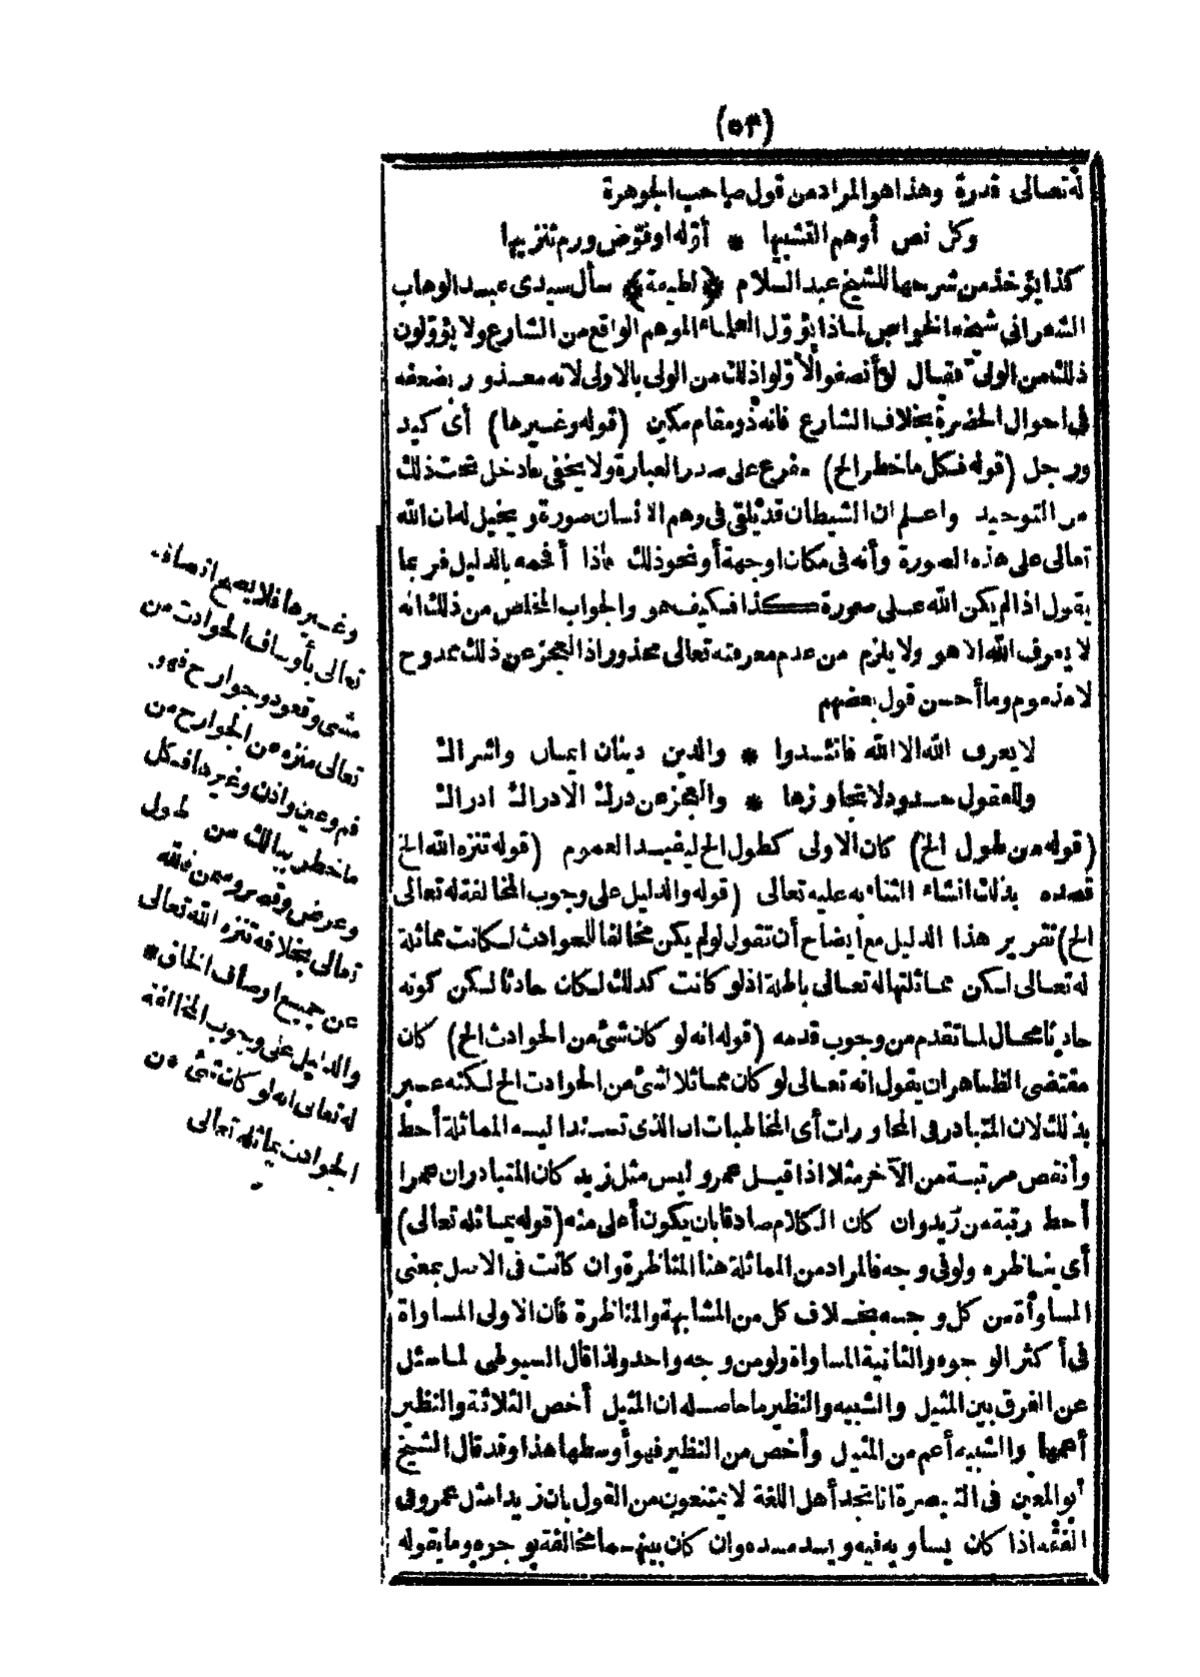 (٥٣)
له تعالى قدرة وهذا هو المراد من قول صاحب الجوهرة
وكل نص أوهم التشبيها * أوّله او فوّض ورم تنزيها
كذا يؤخذ من شرحها للشيخ عبد السلام ﴿لطيفة﴾ سأل سيدى عبد الوهاب
الشعرانى شيخه الخواص لماذا يؤوّل العلماء الموهم الواقع من الشارع ولا يؤوّلون
ذلك من الولى فقال لو أنصفوا لأوّلوا ذلك من الولى بالاولى لانه معذور بضعفه
فى احوال الحضرة بخلاف الشارع فانه ذو مقام مكين (قوله وغيرها) أى كيد
ورجل (قوله فكل ما خطر الخ) مفرع على صدر العبارة ولا يخفى ما دخل تحت ذلك
من التوحيد واعلم ان الشيطان قد يلقى فى وهم الانسان صورة ويخيل له ان الله
تعالى على هذه الصورة وأنه فى مكان او جهة أو نحو ذلك فاذا أفحمه بالدليل فربما
يقول اذا لم يكن الله على صورة كذا فكيف هو والجواب المخلص من ذلك انه
لا يعرف الله الا هو ولا يلزم من عدم معرفته تعالى محذور اذ العجز عن ذلك ممدوح
لا مذموم وما أحسن قول بعضهم
لا يعرف الله الا الله فاتئدوا * والدين دينان ايمان واشراك
وللعقول حدود لا تجاوزها * والعجز عن درك الادراك ادراك
(قوله من طول الخ) كان الاولى كطول الخ ليفيد العموم (قوله تنزه الله الخ
قصده بذلك انشاء الثناء به عليه تعالى (قوله والدليل على وجوب المخالفة له تعالى
الخ) تقرير هذا الدليل مع أيضاح أن تقول لو لم يكن مخالفا للحوادث لكانت مماثلة
له تعالى لكن مماثلتها له تعالى باطلة اذ لو كانت كذلك لكان حادثا لكن كونه
حادثا محال لما تقدم من وجوب قدمه (قوله انه لو كان شئ من الحوادث الخ) كان
مقتضى الظاهر ان يقول انه تعالى لو كان مماثلا لشئ من الحوادث الخ لكنه عبر
بذلك لان المتبادر فى المحاورات أى المخاطبات ان الذى تسند اليه المماثلة أحط
وأنقص مرتبة من الآخر مثلا اذا قيل عمرو ليس مثل زيد كان المتبادر ان عمرا
أحط رتبة من زيد وان كان الكلام صادقا بان يكون أعلى منه (قوله يماثله تعالى)
أى يناظره ولو فى وجه فالمراد من المماثلة هنا المناظرة وان كانت فى الاصل بمعنى
المساوأة من كل وجه بخلاف كل من المشابهة والمناظرة فان الاولى المساواة
فى أكثر الوجوه والثانية المساواة ولو من وجه واحد ولذا قال السيوطى لما سئل
عن الفرق بين المثيل والشبيه والنظير ما حاصله ان المثيل أخص الثلاثة والنظير
أعمها والشبيه أعم من المثيل وأخص من النظير فهو أوسطها هذا وقد قال الشيخ
أبو المعين فى التبصرة انا نجد أهل اللغة لا يمتنعون من القول بان زيدا مثل عمرو فى
الفقه اذا كان يساويه فيه ويسد مسده وان كان بينهما مخالفة بوجوه وما يقوله
وغيرها فلا يصح اتصافه
تعالى بأوصاف الحوادث من
مشى وقعود وجوارح فهو
تعالى منزه عن الجوارح من
فم وعين واذن وغيرها فكل
ما خطر ببالك من طول
وعرض وقصر وسمن فالله
تعالى بخلافه تنزه الله تعالى
عن جميع اوصاف الخلق *
والدليل على وجوب المخالفة
له تعالى انه لو كان شئ من
الحوادث يماثله تعالى